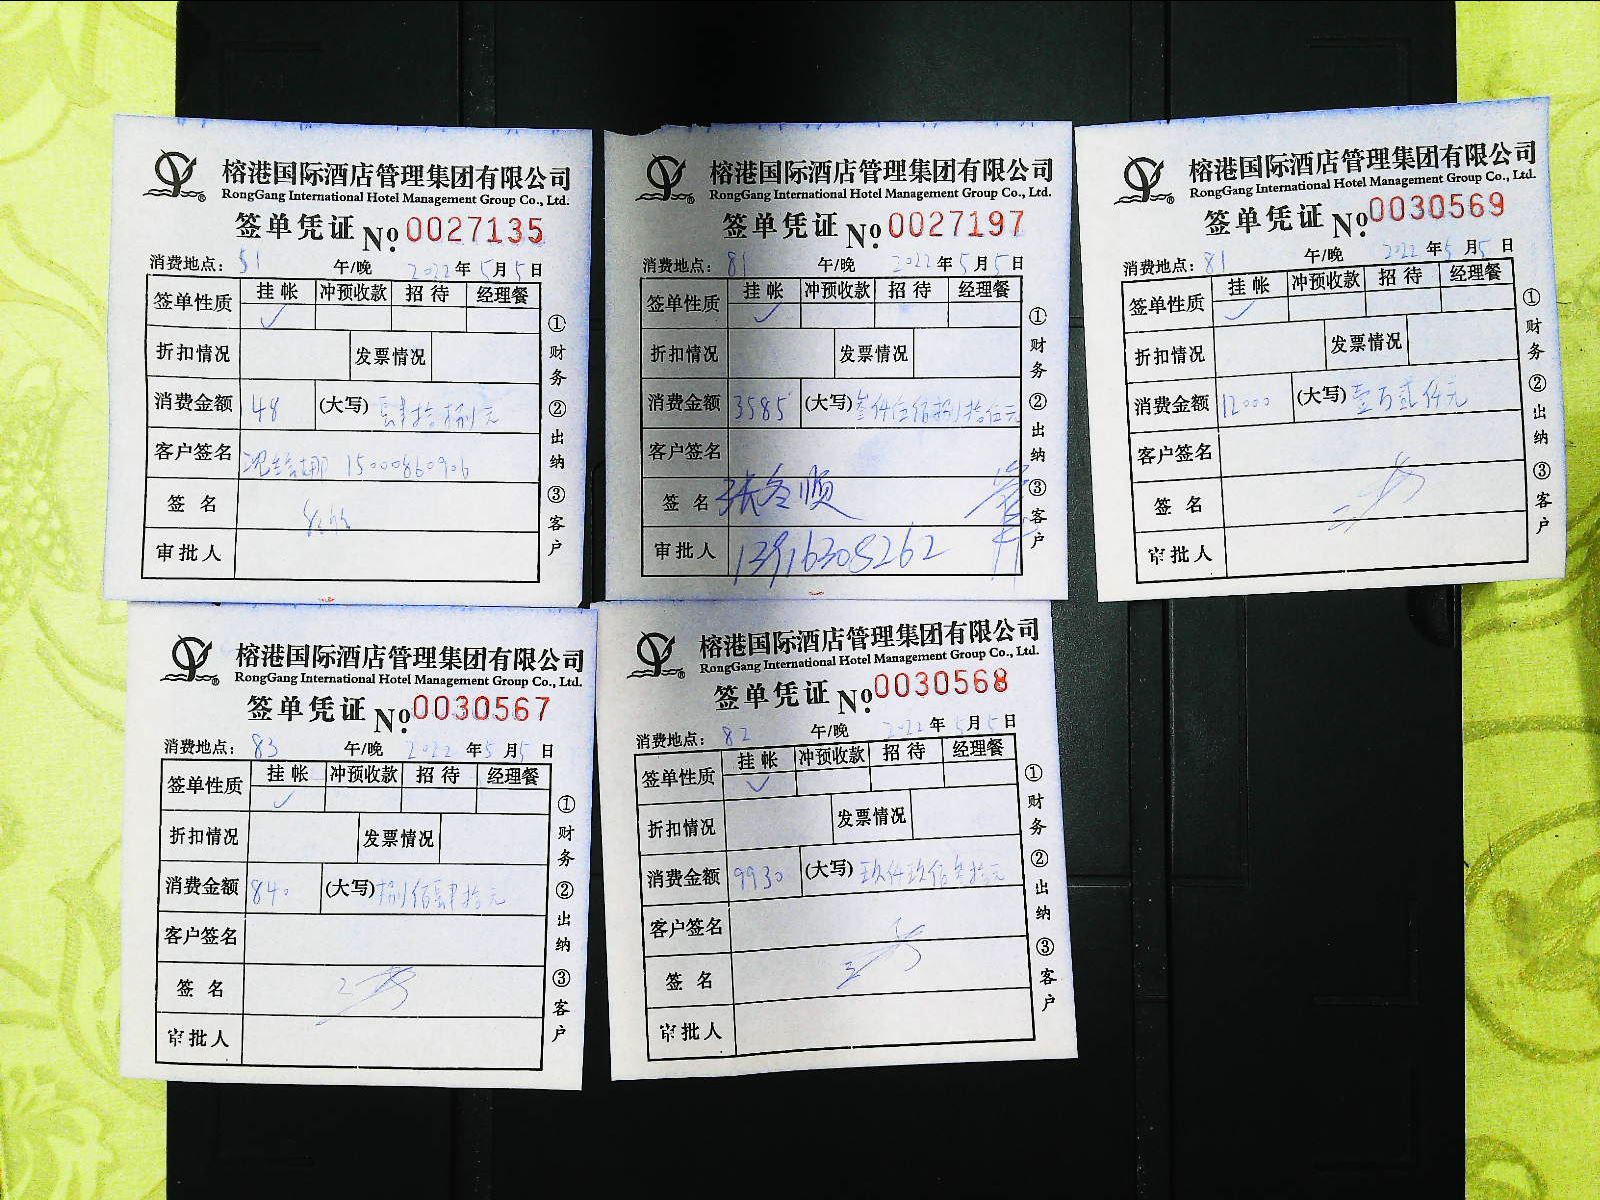 榕港国际酒店管理集团有限公司
RongGang International Hotel Management Group Co., Ltd.
签单凭证 No. 0027135
消费地点: 午/晚 2022年5月5日
签单性质 挂帐 冲预收款 招待 经理餐
✓
折扣情况 发票情况
消费金额 48 (大写) 肆拾捌元
客户签名 15000860906
签名
审批人
①财务 ②出纳 ③客户
榕港国际酒店管理集团有限公司
RongGang International Hotel Management Group Co., Ltd.
签单凭证 No. 0027197
消费地点: 81 午/晚 2022年5月5日
签单性质 挂帐 冲预收款 招待 经理餐
✓
折扣情况 发票情况
消费金额 3585 (大写) 叁仟伍佰捌拾伍元
客户签名
签名 张冬顺
审批人 13916308262
①财务 ②出纳 ③客户
榕港国际酒店管理集团有限公司
RongGang International Hotel Management Group Co., Ltd.
签单凭证 No. 0030569
消费地点: 81 午/晚 2022年5月5日
签单性质 挂帐 冲预收款 招待 经理餐
✓
折扣情况 发票情况
消费金额 12000 (大写) 壹万贰仟元
客户签名
签名
审批人
①财务 ②出纳 ③客户
榕港国际酒店管理集团有限公司
RongGang International Hotel Management Group Co., Ltd.
签单凭证 No. 0030567
消费地点: 83 午/晚 2022年5月5日
签单性质 挂帐 冲预收款 招待 经理餐
✓
折扣情况 发票情况
消费金额 840 (大写) 捌佰肆拾元
客户签名
签名
审批人
①财务 ②出纳 ③客户
榕港国际酒店管理集团有限公司
RongGang International Hotel Management Group Co., Ltd.
签单凭证 No. 0030568
消费地点: 82 午/晚 2022年5月5日
签单性质 挂帐 冲预收款 招待 经理餐
✓
折扣情况 发票情况
消费金额 9930 (大写) 玖仟玖佰叁拾元
客户签名
签名
审批人
①财务 ②出纳 ③客户